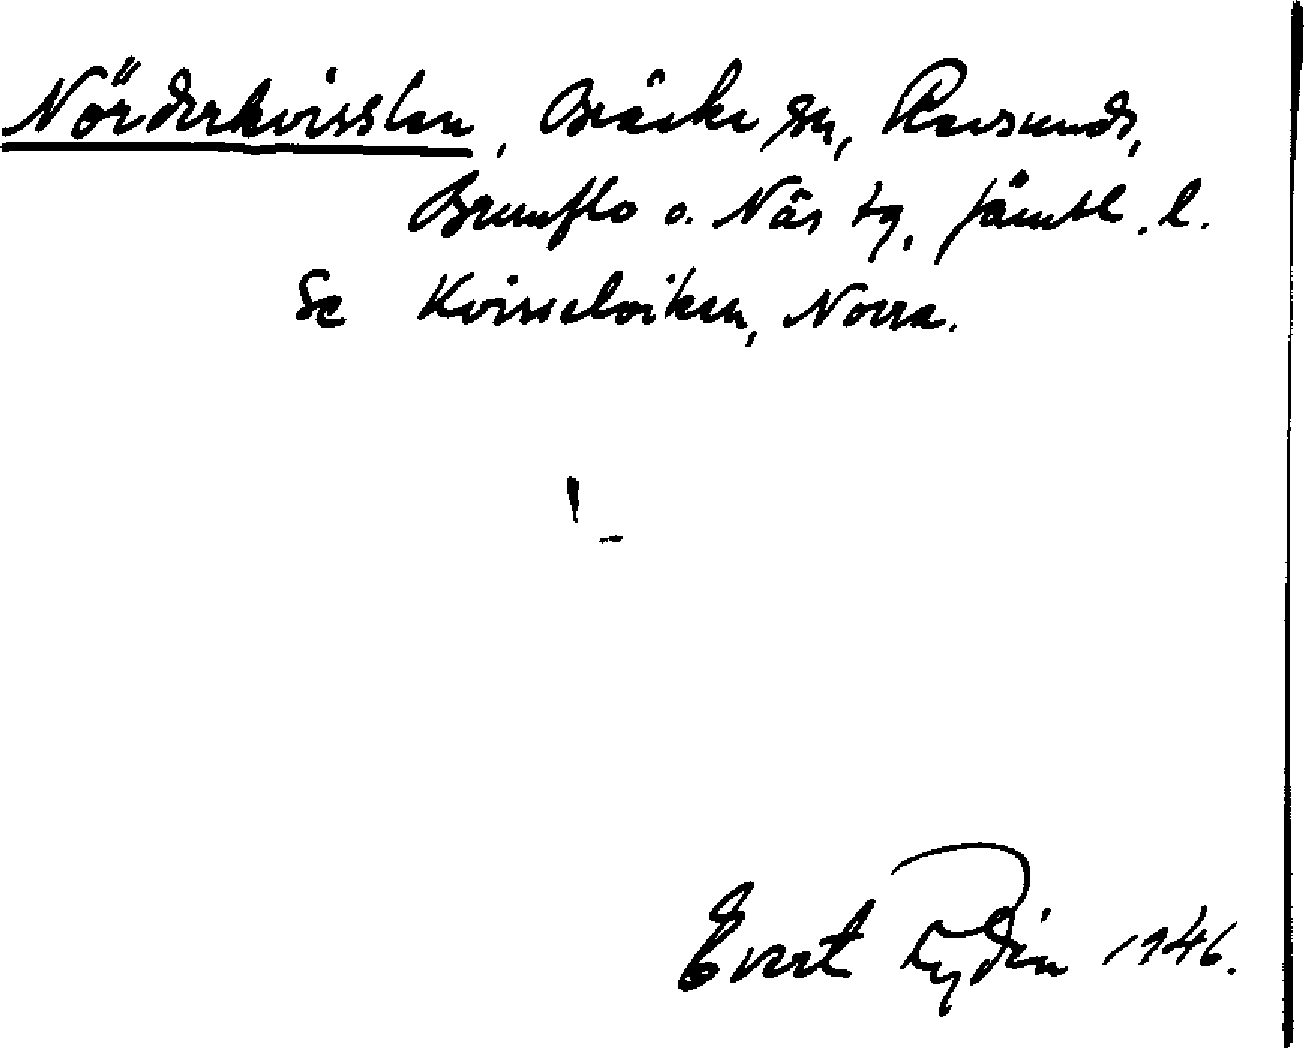 Nörderkvisslan, Bräcke sn, Revsunds,
Brunflo o. Näs tg, Jämtl. l.
Se Kvisselviken, Norra.
!
Evert Lydin 1946.